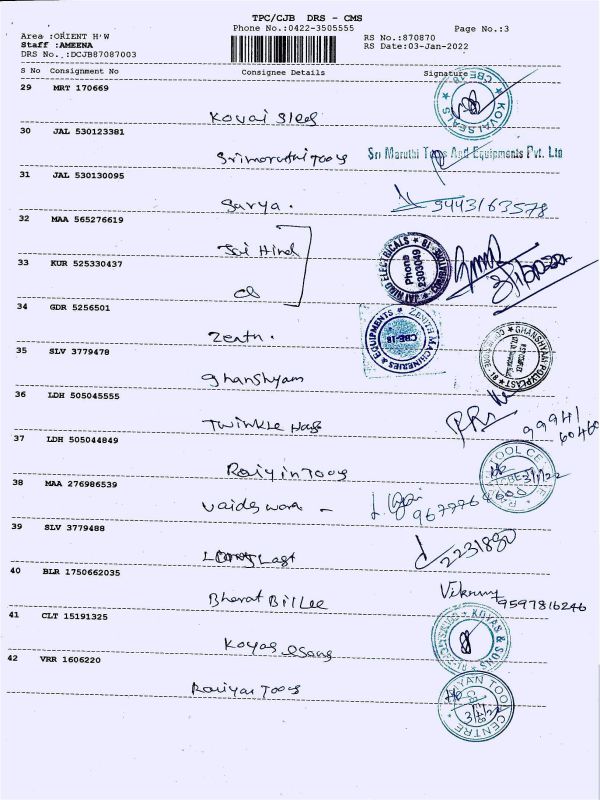 TPC/CJB DRS - CMS
Phone No.:0422-3505555
Page No.:3
Area :ORIENT H'W
Staff :AMEENA
DRS No.:DCJB87087003
RS No.:870870
RS Date:03-Jan-2022
S No Consignment No Consignee Details Signature
29 MRT 170669
Kovai
KOVAI SEALS
CBE-18
30 JAL 530123381
Sri Maruthi Tools And Equipments Pvt. Ltd
31 JAL 530130095
Surya.
9443163578
32 MAA 565276619
Jai Hind
JAI HIND ELECTRICALS
Phone
2303049
33 KUR 525330437
34 GDR 5256501
Zenth.
ZENITH MACHINERIES & EQUIPMENTS
CBE-18
35 SLV 3779478
Ghanshyam
GHANSHYAM POLYPLAST
36 LDH 505045555
Twinkle
99941
60460
37 LDH 505044849
Raiyin Toos
TOOL CENTRE
3/1/22
38 MAA 276986539
39 SLV 3779488
2231830
40 BLR 1750662035
Bharat Billee
9597816246
41 CLT 15191325
Koyas Sons
KOYAS & SONS
42 VRR 1606220
Raiyan Toos
RAYAN TOOL CENTRE